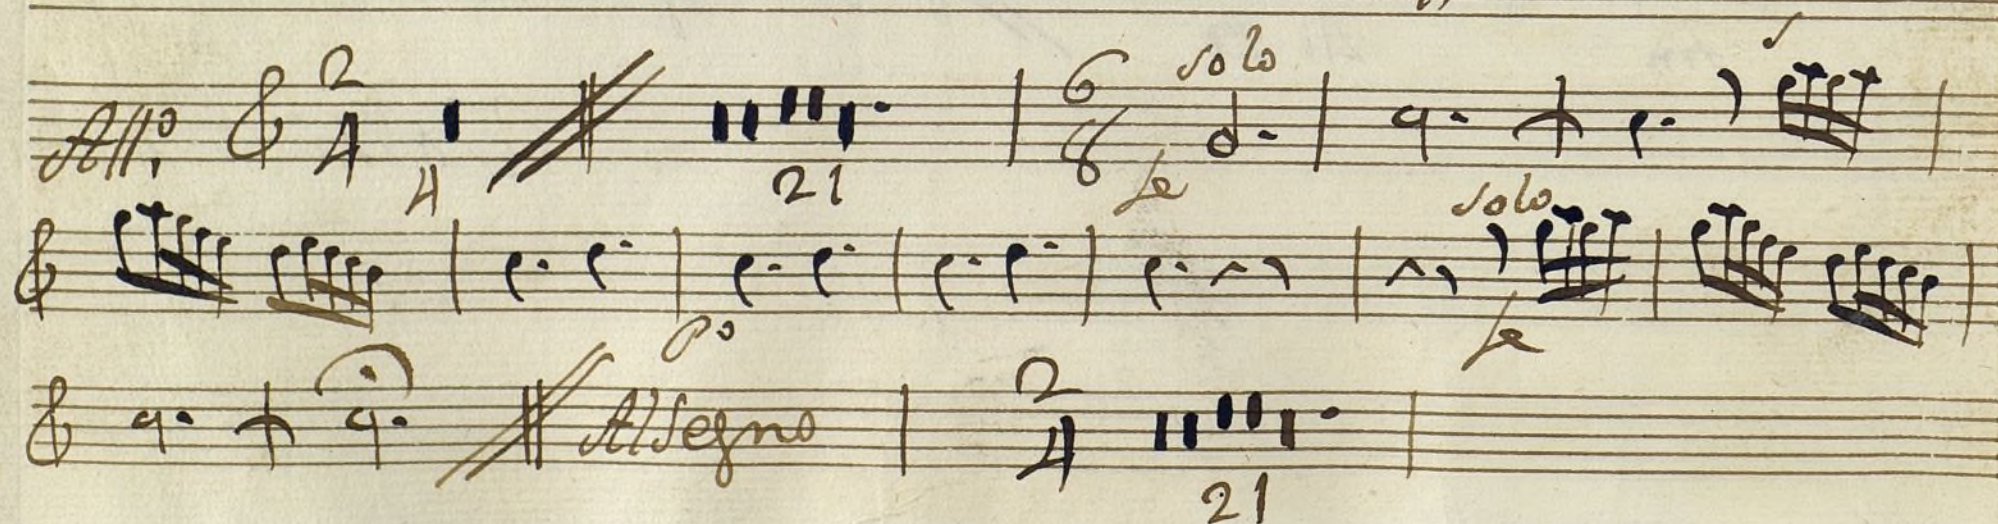 All.o 2/4 4 21 6/8 solo fe
po solo fe
Al Segno 2/4 21